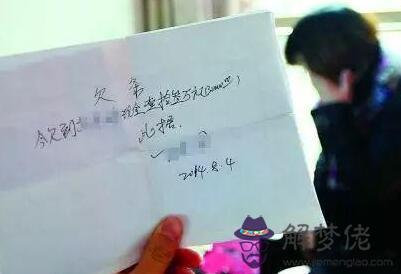 欠条
今欠到 现金壹拾叁万元(130000元)
此据.
2014.8.4
解梦佬
www.jiemenglao.com